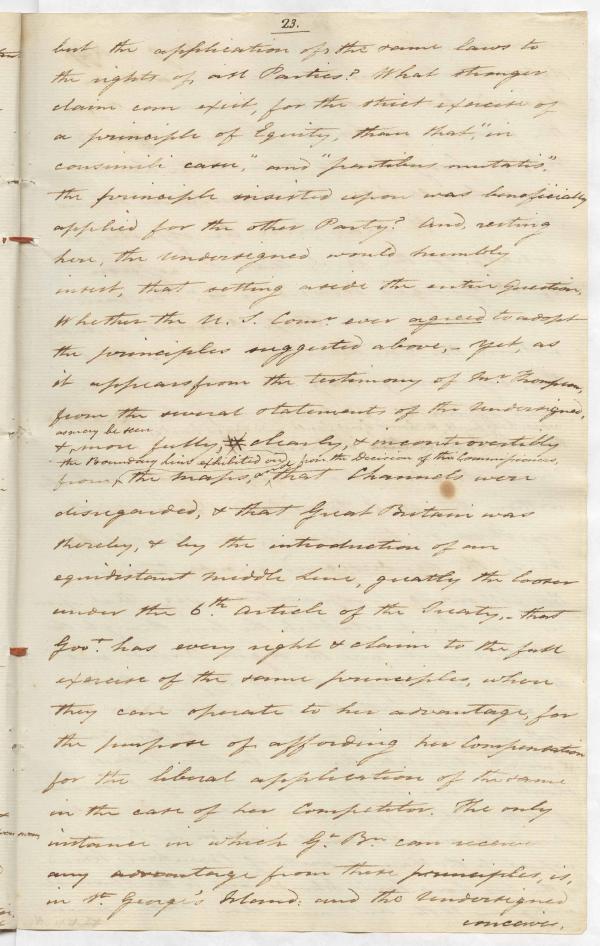 23.
but the application of the same laws to
the rights of all Parties? What stronger
claim can exist, for the strict exercise of
a principle of Equity, than that, "in
consimili casu," and "partibus mutatis,"
the principle insisted upon was beneficially
applied for the other Party? And, resting
here, the Undersigned would humbly
insist, that setting aside the entire Question,
Whether the U. S. Comr. ever agreed to adopt
the principles suggested above, - Yet, as
it appears from the testimony of Mr. Thompson,
from the several statements of the Undersigned,
as may be seen
& more fully, clearly, & incontrovertibly
the Boundary Line exhibited on & from the Decision of the Commissioners,
from the maps, that Channels were
disregarded, & that Great Britain was
thereby, & by the introduction of an
equidistant middle Line, greatly the looser
under the 6th. Article of the Treaty, - that
Govt. has every right & claim to the full
exercise of the same principles, where
they can operate to her advantage, for
the purpose of affording her Compensation
for the liberal application of the same
in the case of her Competitor. The only
instance in which Gt. Bn. can receive
any advantage from these principles, is,
in St. George's Island: and the Undersigned
conceives,